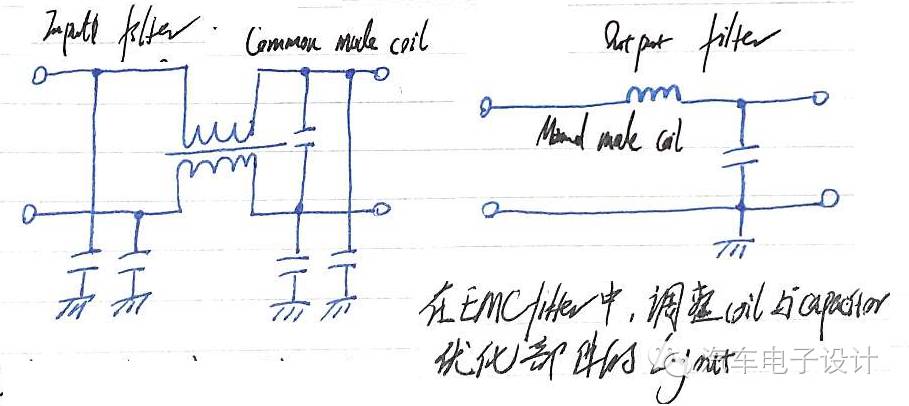 Input filter.
Common mode coil
Output filter
mode coil
在EMC filter中,调整coil与capacitor
优化部件的
汽车电子设计